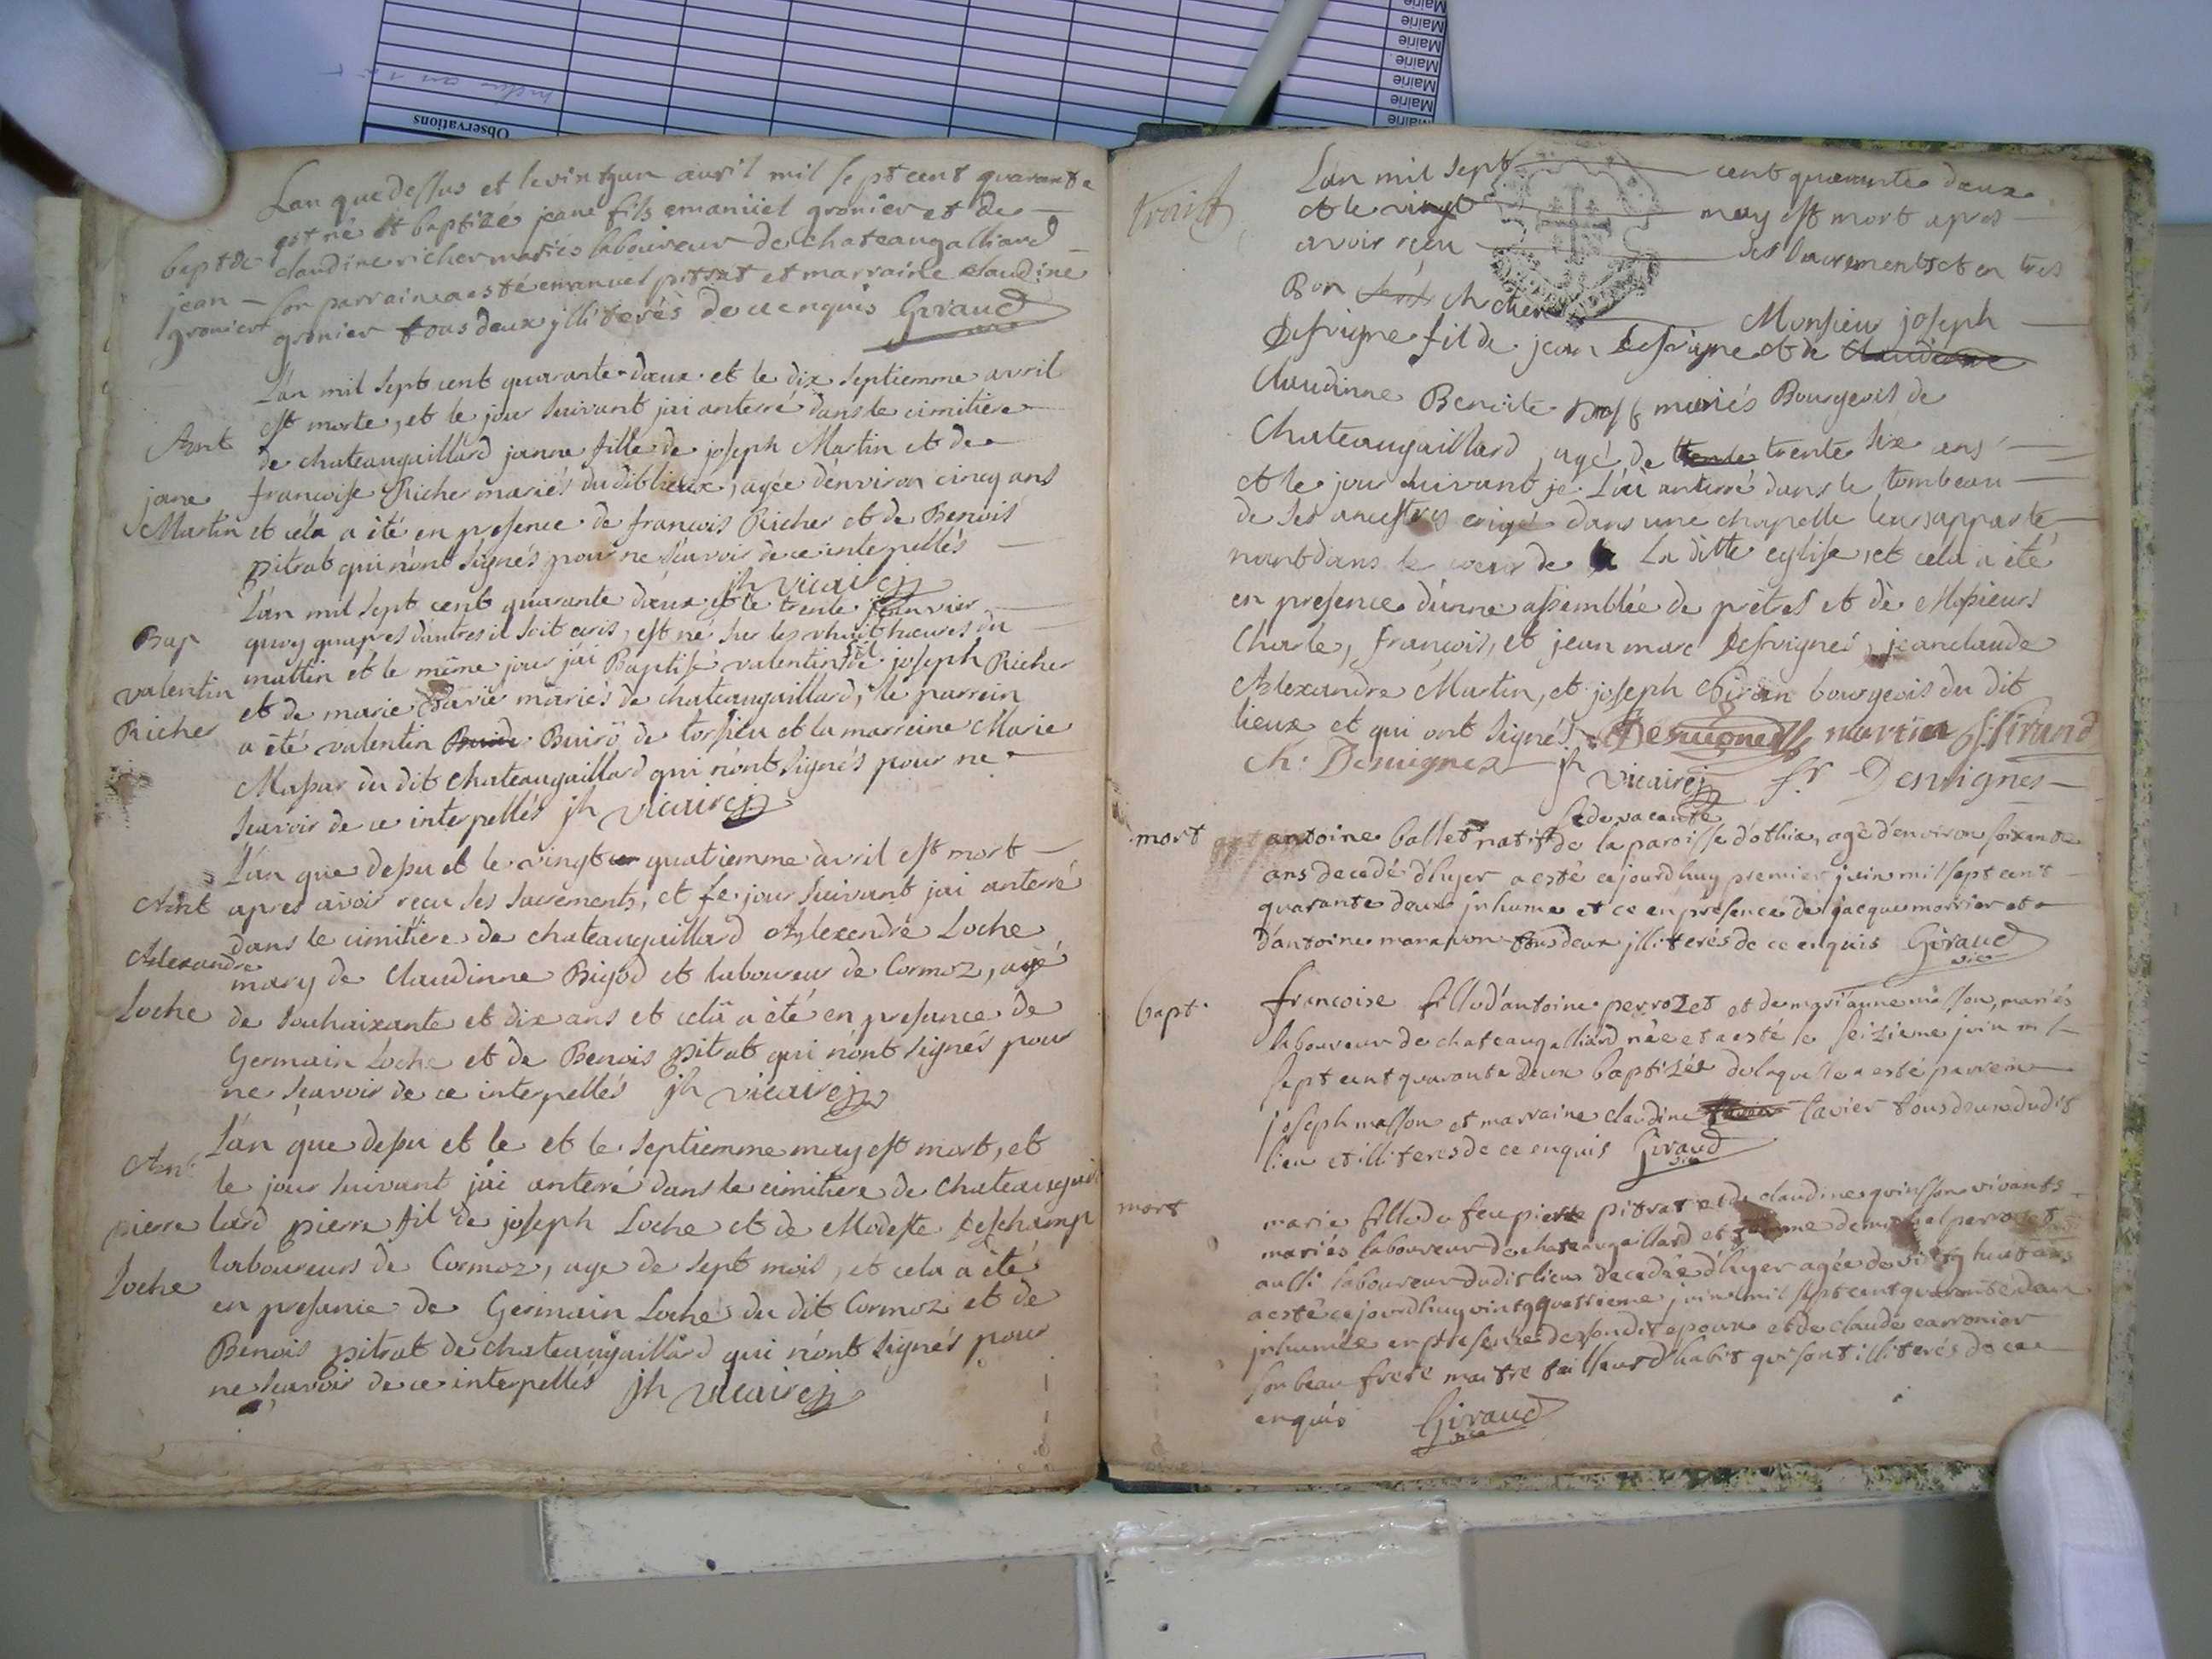 Observations
Mairie
Mairie
Mairie
Mairie
Mairie
Mairie
Lan que dessus et le vintgun auril mil sept cent quarante
est né et baptizé jeane fils emanüel gronier et de
bapt de
claudine richer mariés laboureur de chateaugalliard
jean
son parrain a esté emanuel pitrat et marraine claudine
gronier
gronier tous deux jlliterés de ce enquis Giraud
L'an mil sept cent quarante-deux et le dix septiemme avril
est morte, et le jour suivant jai anterré dans le cimitiere
Ant
de chateaugaillard janne fille de joseph Martin et de
jane
francoise Richer mariés du dit lieux, agée d'environ cincq ans
Martin
et cela a été en presence de francois Richer et de Benois
pitrat qui n'ont signés pour ne scavoir de ce interpellés
jh vicaire
L'an mil sept cent quarante deux et le trente janvier
Bap
quoy quapres d'autres il soit ecris, est né sur les huit heures du
mattin et le même jour j'ai Baptisé valentin fil de joseph Richer
valentin
et de marie mariés de chateaugaillard, le parrein
Richer
a été valentin Buirö de torsieu et la marreine Marie
Massar du dit chateaugaillard qui n'ont signés pour ne
scavoir de ce interpellés jh vicaire
L'an que dessu et le vingt quatriemme avril est mort
Ant
apres avoir recu ses sacrements, et le jour suivant jai anterré
dans le cimitiere de chateaugaillard Alexendré Loche
Alexandre
mary de Claudinne Bigod et laboureur de Cormoz, agé
Loche
de souhaixante et dix ans et cela a été en presance de
Germain Loche et de Benois pitrat qui n'ont signés pour
ne scavoir de ce interpellés jh vicaire
L'an que dessu et le et le septiemme may est mort, et
Ant
le jour suivant j'ai anterré dans le cimitiere de chateaugail
pierre
lard pierre fil de joseph Loche et de Modeste Deschamp
Loche
laboureurs de Cormoz, age de sept mois, et cela a été
en presance de Germain Loche du dit Cormoz et de
Benois pitrat de chateaugaillard qui n'ont signés pour
ne scavoir de ce interpellés jh vicaire
L'an mil sept cent quarante deux
et le vingt may est mort apres
avoir reçu ses sacrements et en tres
Bon Monsieur joseph
Desvigne fil de jean Desvigne et de Claudinne
Claudinne Benoite mariés Bourgeois de
Chateaugaillard, agé de trente trente six ans
et le jour suivant je l'ai anterré dans le tombeau
de ses ancestres erigé dans une chapelle leurs apparte
nant dans le coeur de la La ditte eglise, et cela a été
en presence d'unne assemblée de prêtres et de Messieurs
Charle, francois, et jean marc Desvignes, jeanclaude
Alexandre Martin, et joseph Girin bourgeois du dit
lieux et qui ont signés Desvignes martin
Ch: Desvignes jh vicaire fr Desvignes
sede vacante
mort
antoine ballet natif de la paroisse d'othia, agé d'environ soixante
ans decedé d'hyer a esté cejourdhuy premier juin mil sept cent
quarante deux jnhumé et ce en presence de jacque morrier et
d'antoine tous deux jlliterés de ce enquis Giraud
vic
bapt
francoise fille d'antoine perrozet et de marianne masson, mariés
laboureur de chateaugalliard née et a esté le seizieme juin mil
sept cent quarante deux baptizée de laquelle a esté parrein
joseph masson et marraine claudine tavier tous deux dudit
lieu et illiteres de ce enquis Giraud
vic
mort
marie fille de feu pierre pitrat et de claudine quinsson vivants
mariés laboureur de chateaugaillard et femme de michel perrozet
aussi laboureur dudit lieu decedée d'hyer agée de vingt huit ans
a esté cejourdhuy vintgquattrieme juin mil sept cent quarante deux
jnhumée en presence de sondit epoux et de claude carronier
son beau frere maitre tailleur d'habit qui sont illiterés de ce
enquis Giraud
vic